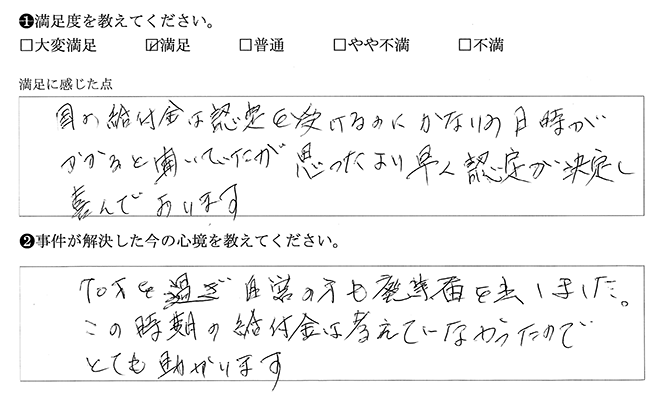 ❶満足度を教えてください。
□大変満足 ☑満足 □普通 □やや不満 □不満
満足に感じた点
国の給付金は認定を受けるのにかなりの日時が
かかると聞いていたが思ったより早く認定が決定し
喜んでおります
❷事件が解決した今の心境を教えてください。
70才を過ぎ自営の方も廃業届を出しました。
この時期の給付金は考えていなかったので
とても助かります